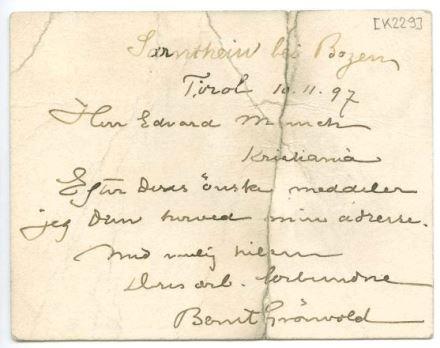 [K229]
Sarnthein bei Bozen
Tirol 10.11.97
Herr Edvard Munch
Kristiania
Efter Deres önske meddeler
jeg Dem herved min adresse.
Med venlig hilsen
Deres arb. forbundne
Bernt Grönvold